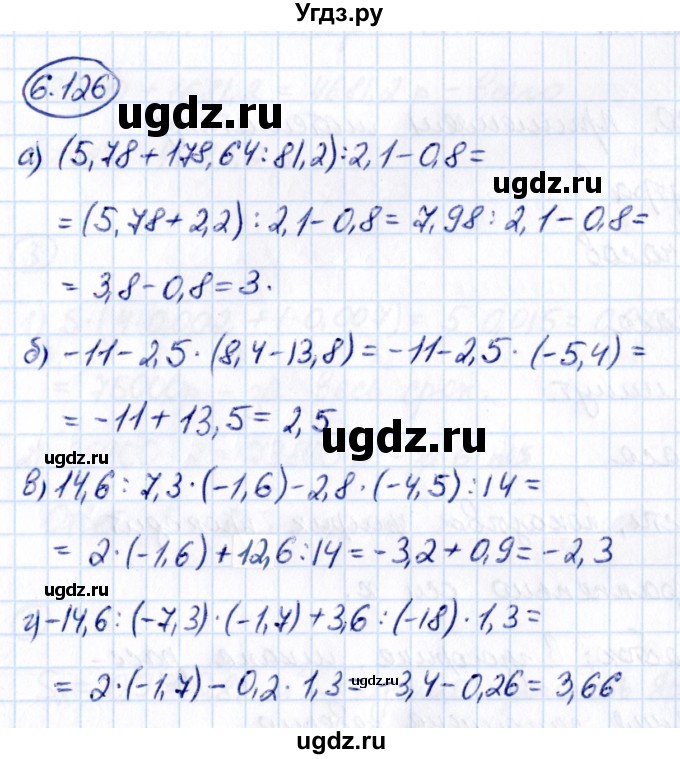 Угдз.ру
6.126
ugdz.ru
а) (5,78+178,64:81,2):2,1-0,8=
ugdz.ru
=(5,78+2,2):2,1-0,8=7,98:2,1-0,8=
=3,8-0,8=3.
б) -11-2,5·(8,4-13,8)=-11-2,5·(-5,4)=
=-11+13,5=2,5
ugdz.ru
ugdz.ru
в) 14,6:7,3·(-1,6)-2,8·(-4,5):14=
=2·(-1,6)+12,6:14=-3,2+0,9=-2,3
ugdz.ru
г) -14,6:(-7,3)·(-1,7)+3,6:(-18)·1,3=
=2·(-1,7)-0,2·1,3=-3,4-0,26=3,66
ugdz.ru
ugdz.ru